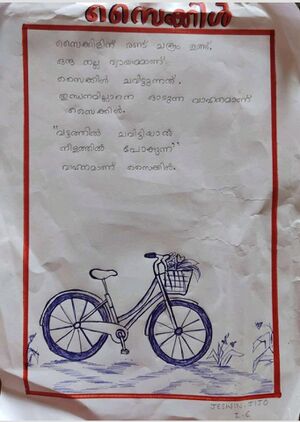 സൈക്കിൾ
സൈക്കിളിന് രണ്ട് ചക്രം ഉണ്ട്.
ഒരു നല്ല വ്യായാമമാണ്
സൈക്കിൾ ചവിട്ടുന്നത്.
ഇന്ധനമില്ലാതെ ഓടുന്ന വാഹനമാണ്
സൈക്കിൾ.
"വട്ടത്തിൽ ചവിട്ടിയാൽ
നീളത്തിൽ പോകുന്ന"
വാഹനമാണ് സൈക്കിൾ.
JESWIN JIJO
I-C